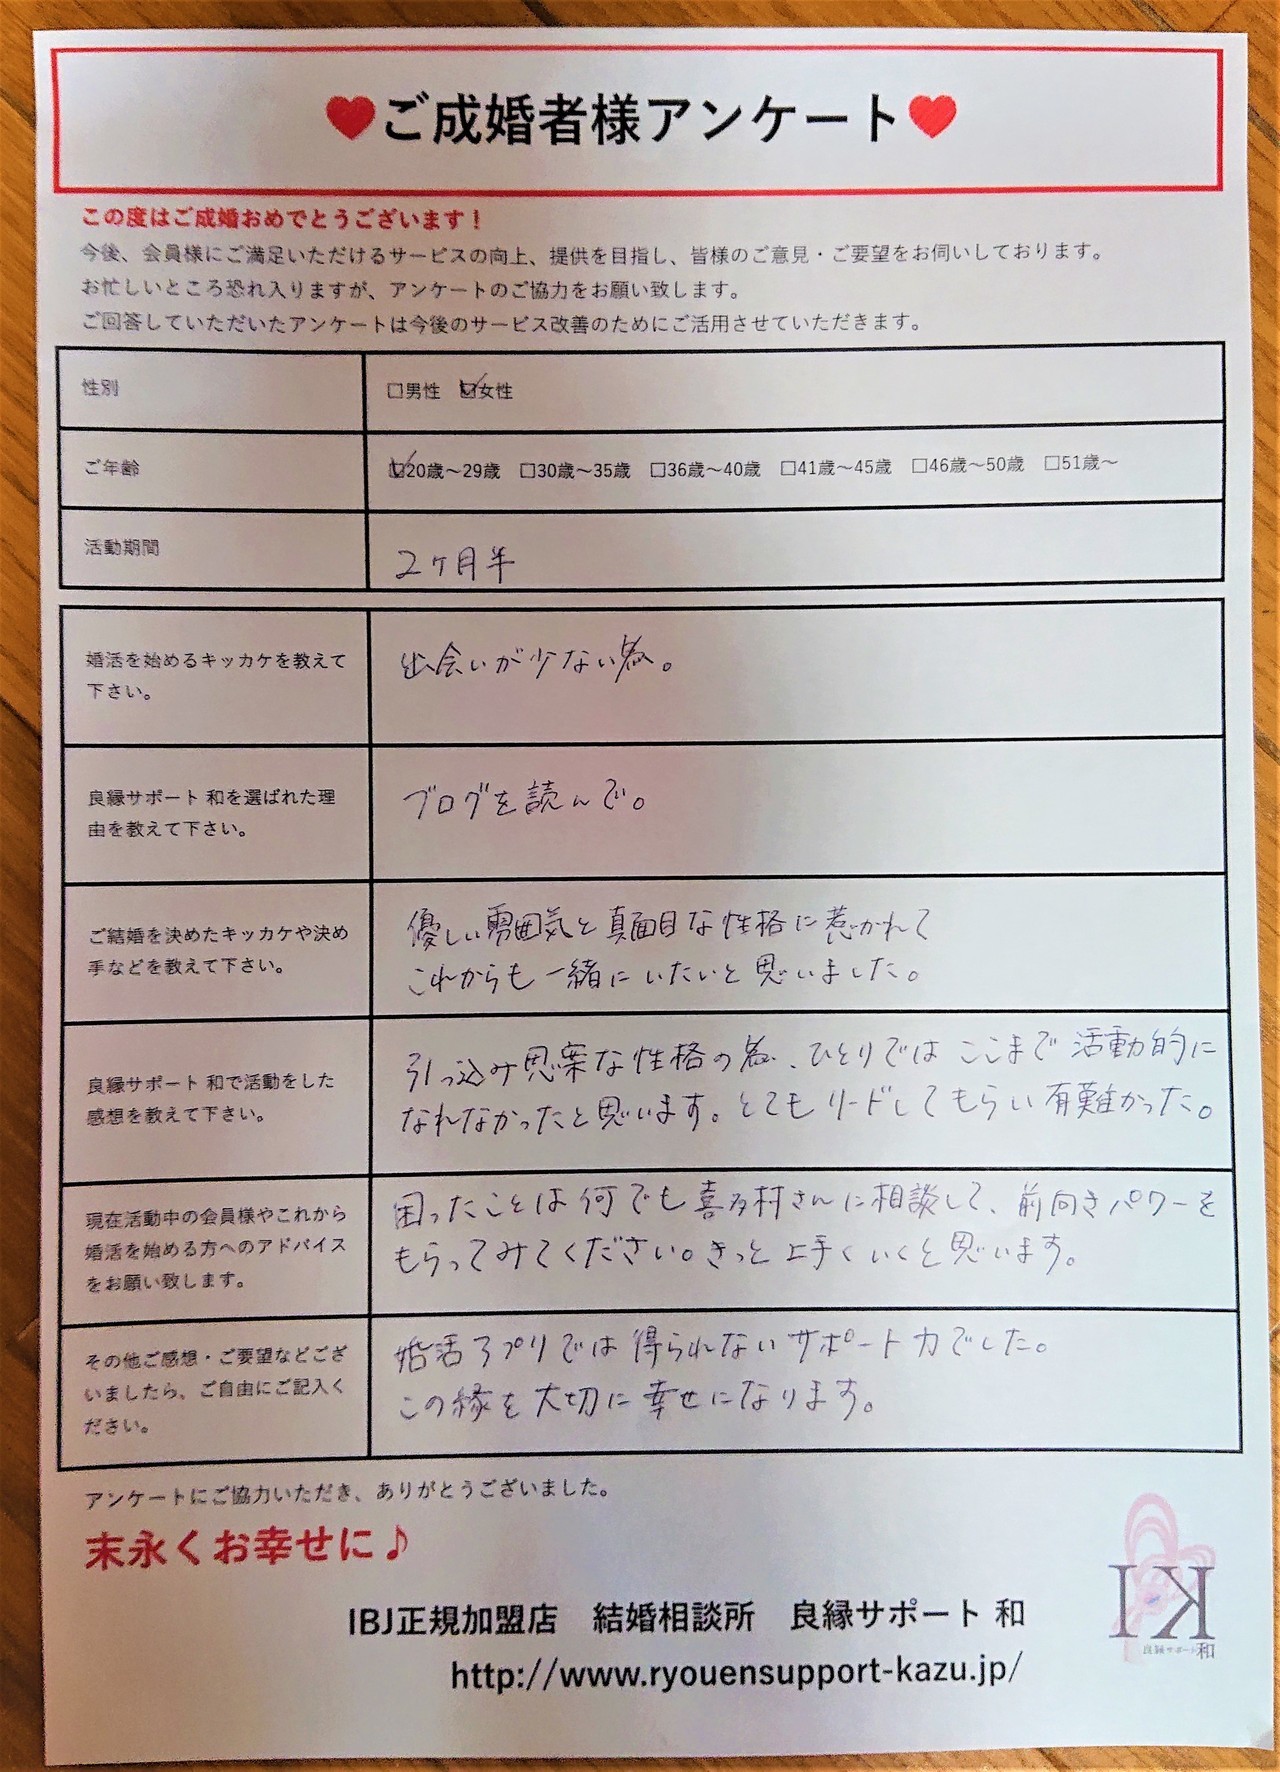 ♥ご成婚者様アンケート♥
この度はご成婚おめでとうございます！
今後、会員様にご満足いただけるサービスの向上、提供を目指し、皆様のご意見・ご要望をお伺いしております。
お忙しいところ恐れ入りますが、アンケートのご協力をお願い致します。
ご回答していただいたアンケートは今後のサービス改善のためにご活用させていただきます。
性別
□男性 ☑女性
ご年齢
☑20歳～29歳 □30歳～35歳 □36歳～40歳 □41歳～45歳 □46歳～50歳 □51歳～
活動期間
2ヶ月半
婚活を始めるキッカケを教えて
下さい。
出会いが少ない為。
良縁サポート 和を選ばれた理
由を教えて下さい。
ブログを読んで。
ご結婚を決めたキッカケや決め
手などを教えて下さい。
優しい雰囲気と真面目な性格に惹かれて
これからも一緒にいたいと思いました。
良縁サポート 和で活動をした
感想を教えて下さい。
引っ込み思案な性格の為、ひとりではここまで活動的に
なれなかったと思います。とてもリードしてもらい有難かった。
現在活動中の会員様やこれから
婚活を始める方へのアドバイス
をお願い致します。
困ったことは何でも喜多村さんに相談して、前向きパワーを
もらってみてください。きっと上手くいくと思います。
その他ご感想・ご要望などござ
いましたら、ご自由にご記入く
ださい。
婚活アプリでは得られないサポート力でした。
この縁を大切に幸せになります。
アンケートにご協力いただき、ありがとうございました。
末永くお幸せに♪
IBJ正規加盟店 結婚相談所 良縁サポート 和
http://www.ryouensupport-kazu.jp/
良縁サポート和